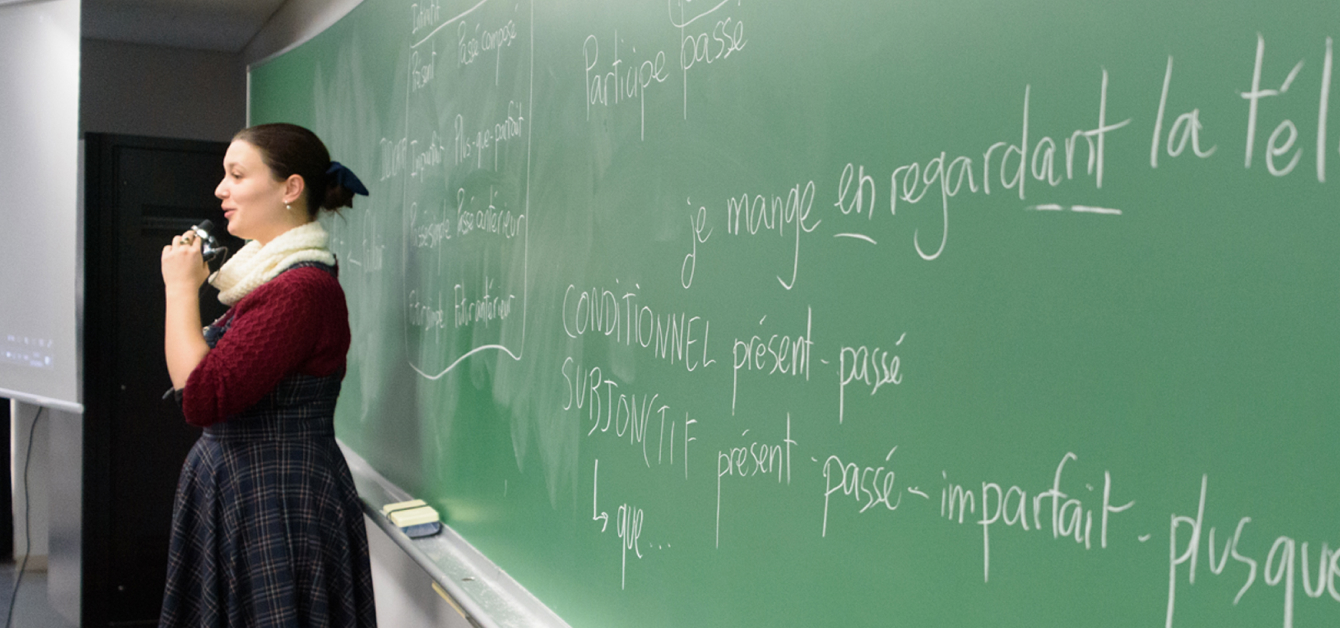 Infinitif
Présent Passé composé
Imparfait Plus-que-parfait
Passé simple Passé antérieur
Futur simple Futur antérieur
Participe passé
je mange en regardant la tél
CONDITIONNEL présent - passé
SUBJONCTIF présent - passé - imparfait - plusque
↳ que...